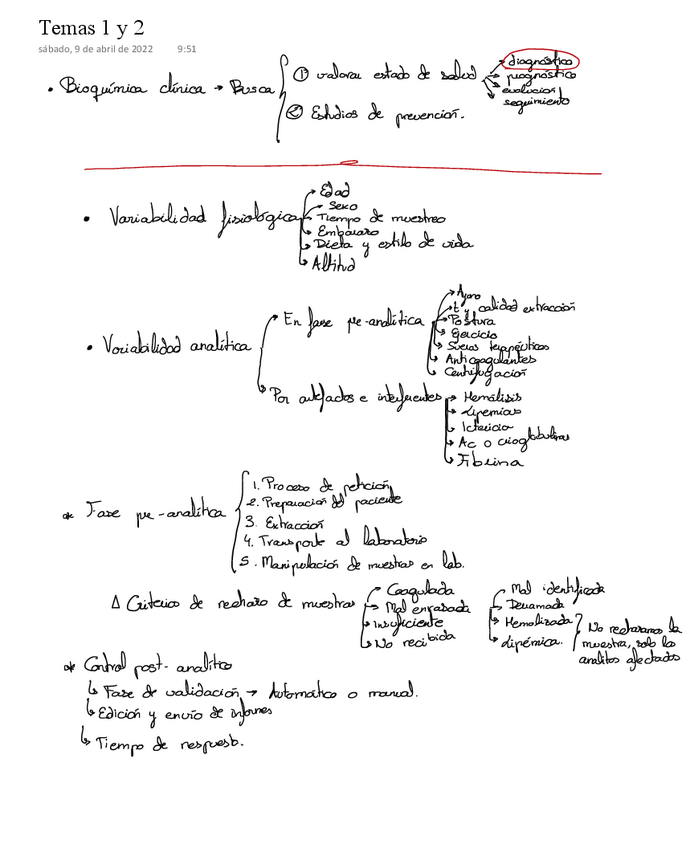 Temas 1 y 2
sábado, 9 de abril de 2022 9:51
• Bioquímica clínica → Busca
① valorar estado de salud
diagnóstico
pronóstico
evolución
seguimiento
② Estudios de prevención.
• Variabilidad fisiológica
Edad
Sexo
Tiempo de muestreo
Embarazo
Dieta y estilo de vida
Altitud
• Variabilidad analítica
En fase pre-analítica
Ayuno
t y calidad extracción
Postura
Ejercicio
Sueros terapéuticos
Anticoagulantes
Centrifugación
Por artefactos e interferentes
Hemólisis
Lipemias
Ictericia
Ac o crioglobulinas
Fibrina
* Fase pre-analítica
1. Proceso de petición
2. Preparación del paciente
3. Extracción
4. Transporte al laboratorio
5. Manipulación de muestras en lab.
Δ Criterios de rechazo de muestras
Coagulada
Mal enrasada
Insuficiente
No recibida
Mal identificada
Derramada
Hemolizada
Lipémica.
No rechazamos la
muestra, solo los
analitos afectados
* Control post-analítico
↳ Fase de validación → Automático o manual.
↳ Edición y envío de informes
↳ Tiempo de respuest.